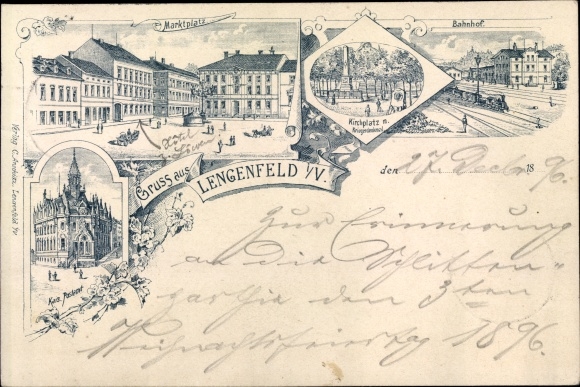 Marktplatz
Bahnhof.
Kirchplatz u.
Kriegerdenkmal
Gruss aus
LENGENFELD i/V.
Kais. Postamt
den 27. Decbr. 1896.
Zur Erinnerung
an die Schlitten-
parthie den 3ten
Weihnachtsfeiertag 1896.